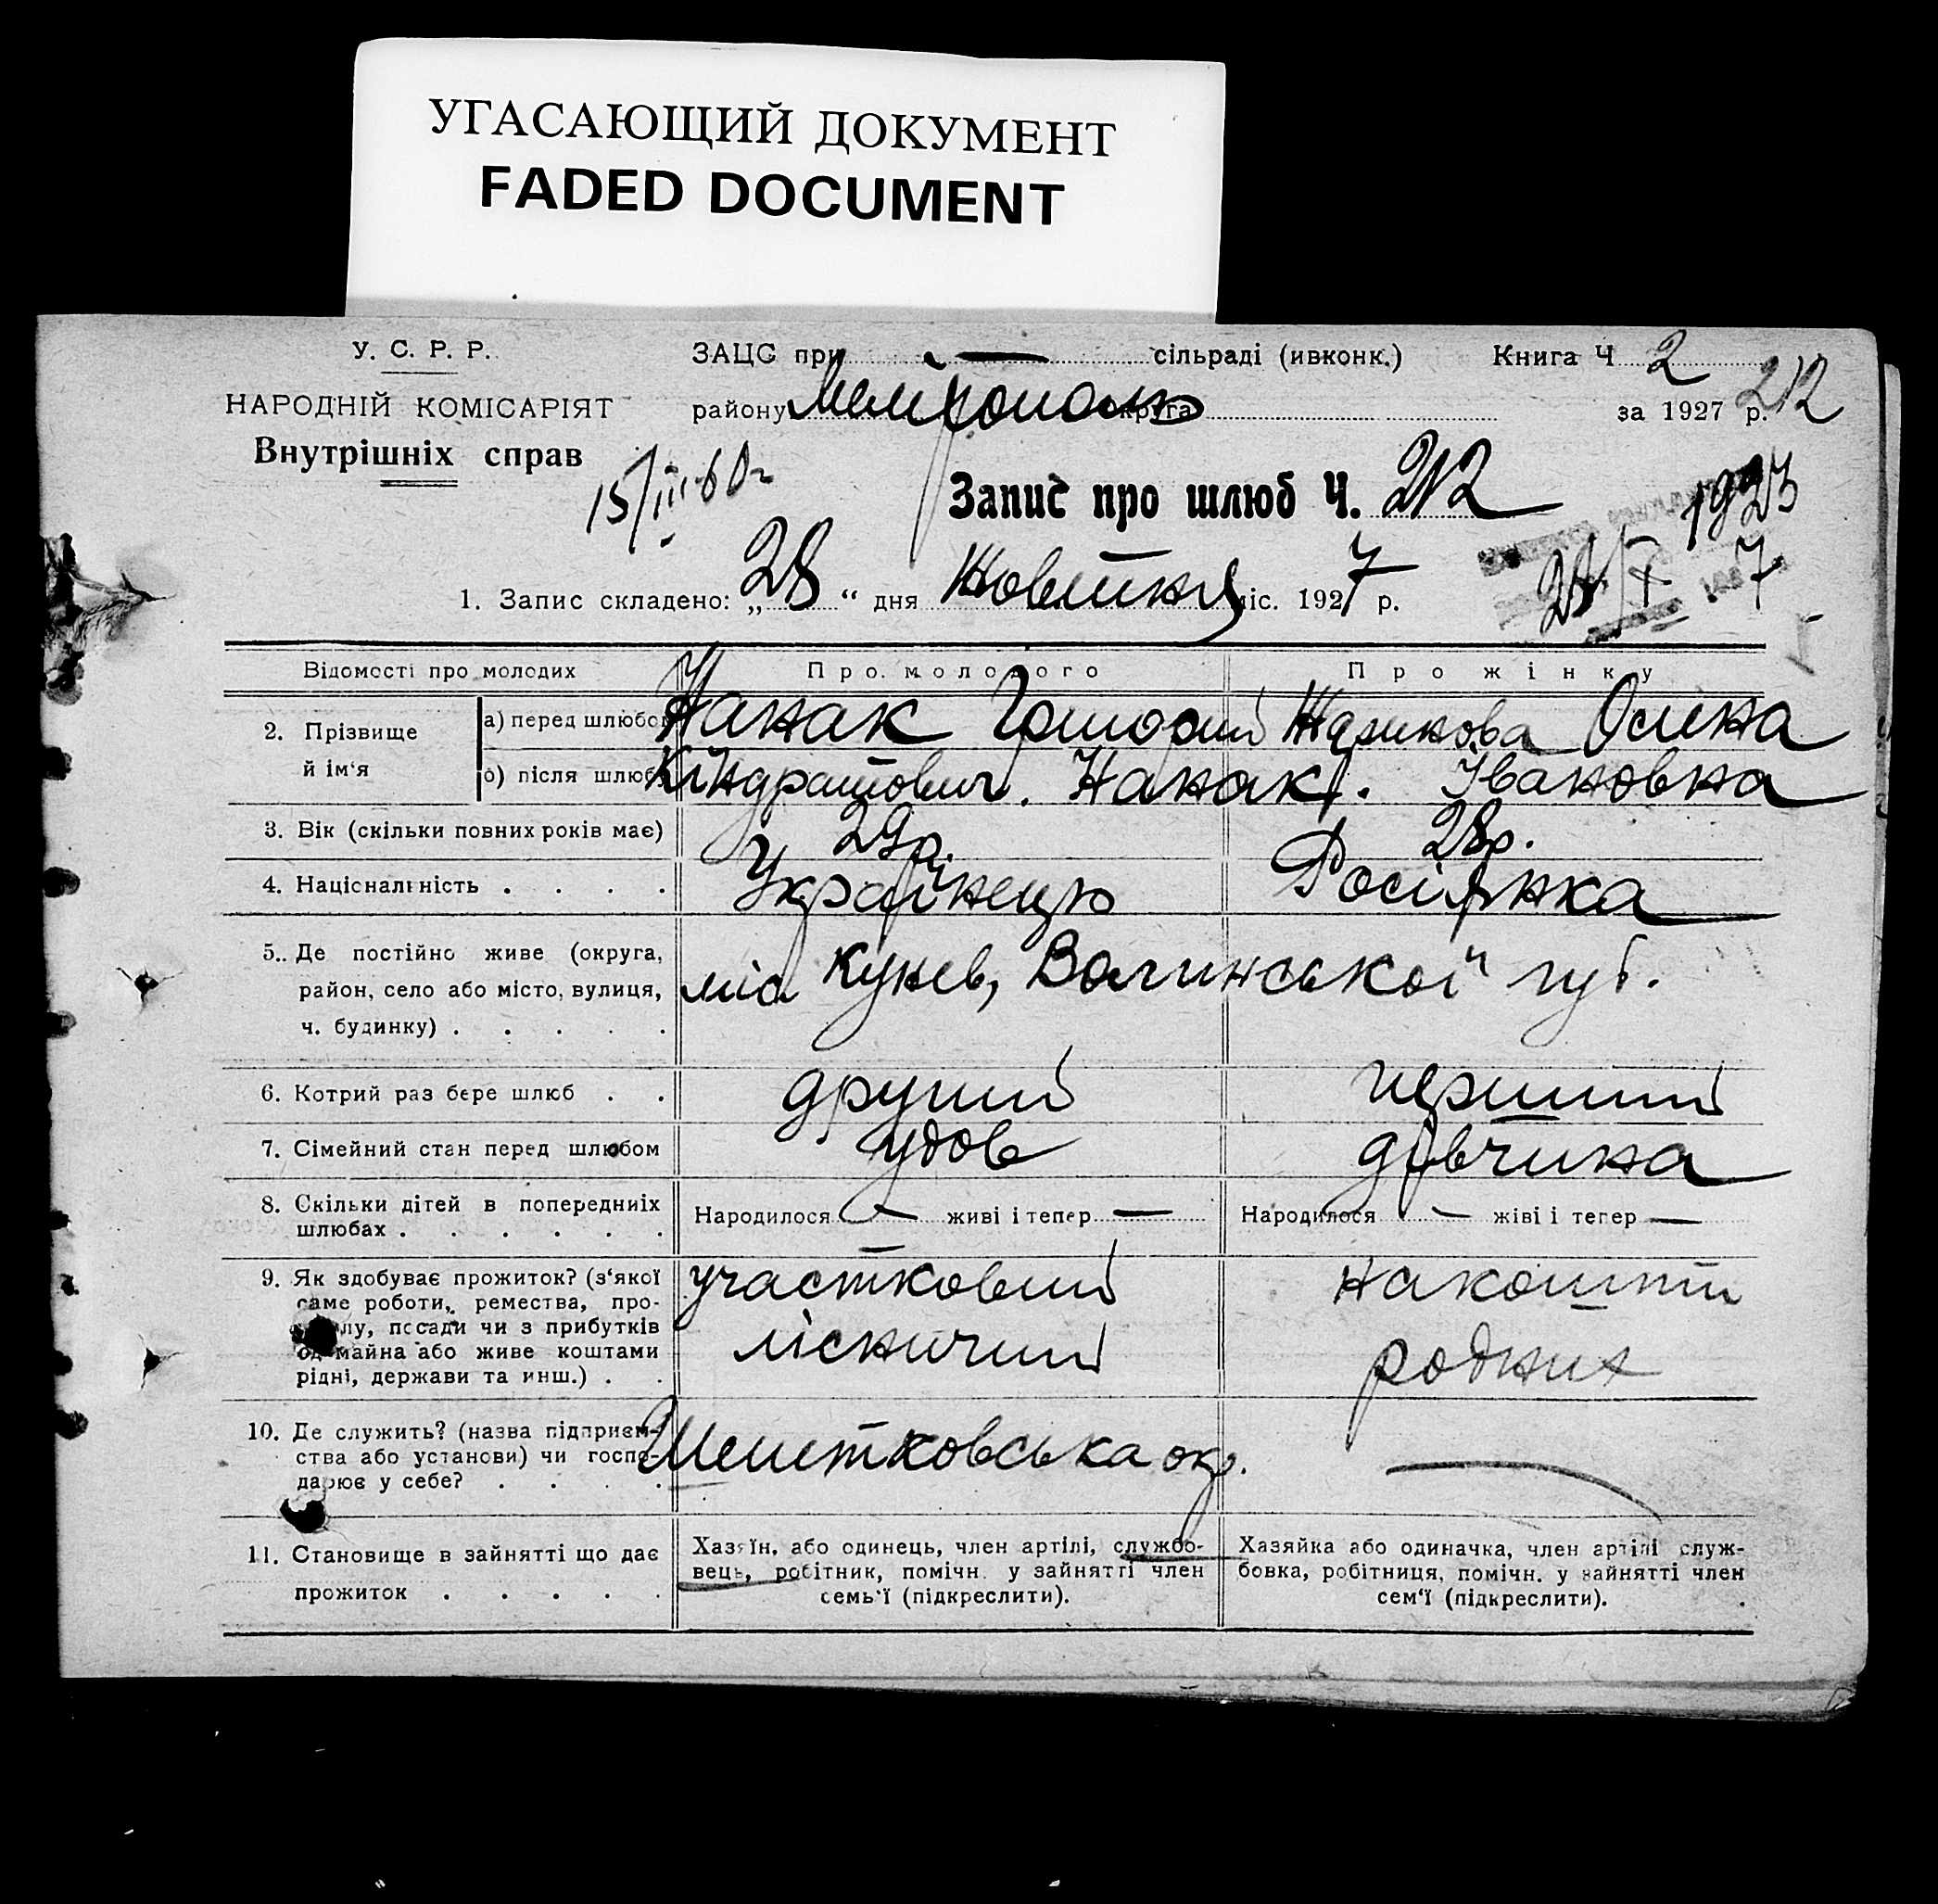 УГАСАЮЩИЙ ДОКУМЕНТ
FADED DOCUMENT
У. С. Р. Р.
НАРОДНІЙ КОМІСАРІЯТ
Внутрішніх справ
ЗАЦС при — сільраді (ивконк.) Книга Ч 2
району округа за 1927 р. 212
15/III-60г
Запис про шлюб Ч. 212
1923
1. Запис складено: „28“ дня Жовтня міс. 1927 р.
28/X 7
Відомості про молодих Про молодого Про жінку
2. Прізвище й ім‘я
а) перед шлюбом Канак Григорий Жарикова Осина
б) після шлюбу Кіндратович. Канак. Івановна
3. Вік (скільки повних років має) 29р. 28р.
4. Національність . . . . Українець Росіянка
5. Де постійно живе (округа, район, село або місто, вулиця, ч. будинку) . . . . . міс Кунев, Волинської губ.
6. Котрий раз бере шлюб . . другий перший
7. Сімейний стан перед шлюбом удов дівчина
8. Скільки дітей в попередниіх шлюбах . . . . . . Народилося — живі і тепер — Народилося — жіві і тепер —
9. Як здобуває прожиток? (з‘якої саме роботи, ремества, про-
лу, посади чи з прибутків
од майна або живе коштами
рідні, держави та инш.) . .
участковий
лісничий
на кошти
родних
10. Де служить? (назва підприєм-
ства або установи) чи госпо-
дарює у себе? . . . .
Шепетковська окр.
—
11. Становище в зайнятті що дає
прожиток . . . . .
Хазяїн, або одинець, член артілі, службо-
вець, робітник, помічн. у зайнятті член
семь‘ї (підкреслити).
Хазяйка або одиначка, член артілі служ-
бовка, робітниця, помічн. у зайнятті член
сем‘ї (підкреслити).